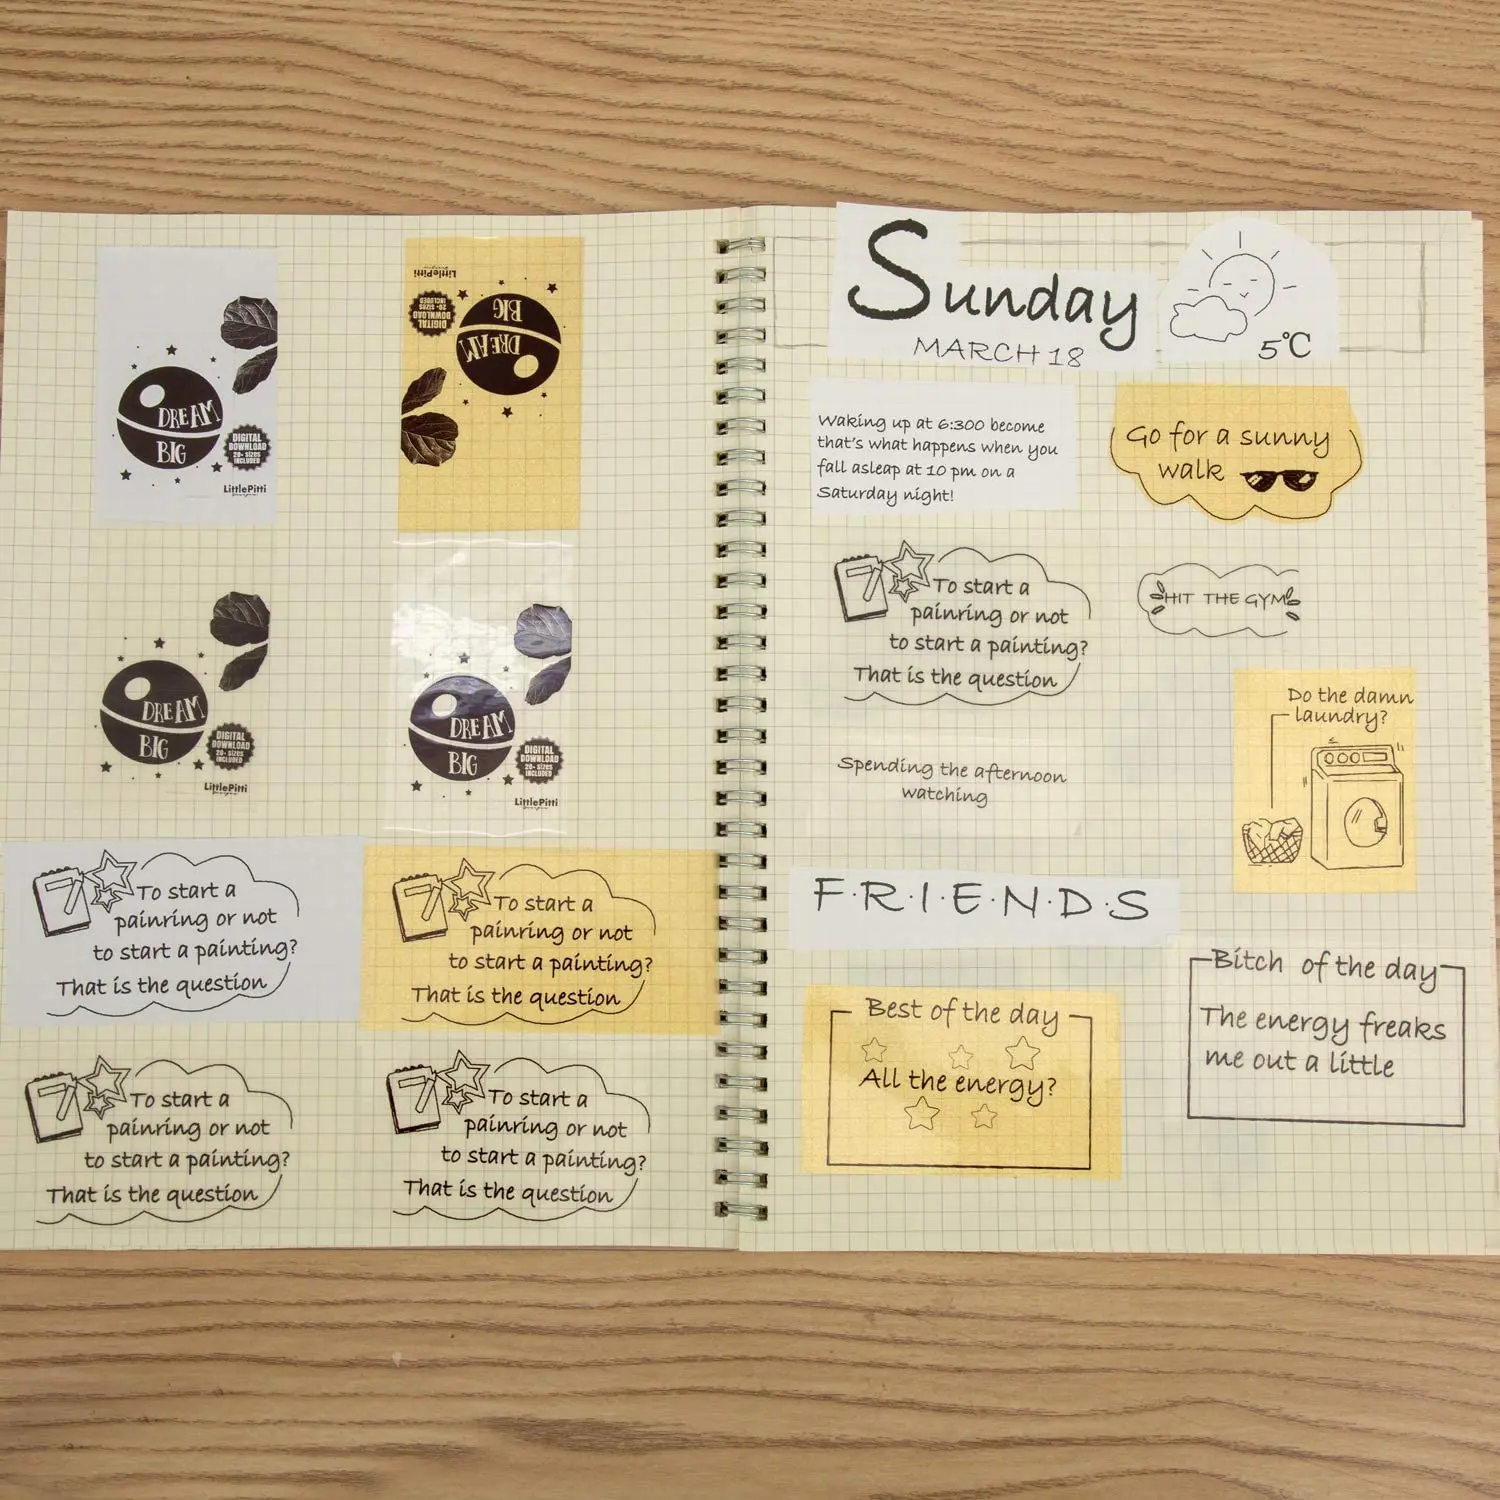 DREAM
BIG
DIGITAL
DOWNLOAD
20+ sizes
INCLUDED
LittlePitti
LittlePitti
DIGITAL
DOWNLOAD
20+ sizes
INCLUDED
DREAM
BIG
DREAM
BIG
DIGITAL
DOWNLOAD
20+ sizes
INCLUDED
LittlePitti
DREAM
BIG
DIGITAL
DOWNLOAD
20+ sizes
INCLUDED
LittlePitti
7
To start a
painring or not
to start a painting?
That is the question
7
To start a
painring or not
to start a painting?
That is the question
7
To start a
painring or not
to start a painting?
That is the question
7
To start a
painring or not
to start a painting?
That is the question
Sunday
MARCH 18
5°C
Waking up at 6:300 become
that's what happens when you
fall asleap at 10 pm on a
Saturday night!
Go for a sunny
walk
7
To start a
painring or not
to start a painting?
That is the question
HIT THE GYM
Do the damn
laundry?
Spending the afternoon
watching
F·R·I·E·N·D·S
Best of the day
All the energy?
Bitch of the day
The energy freaks
me out a little